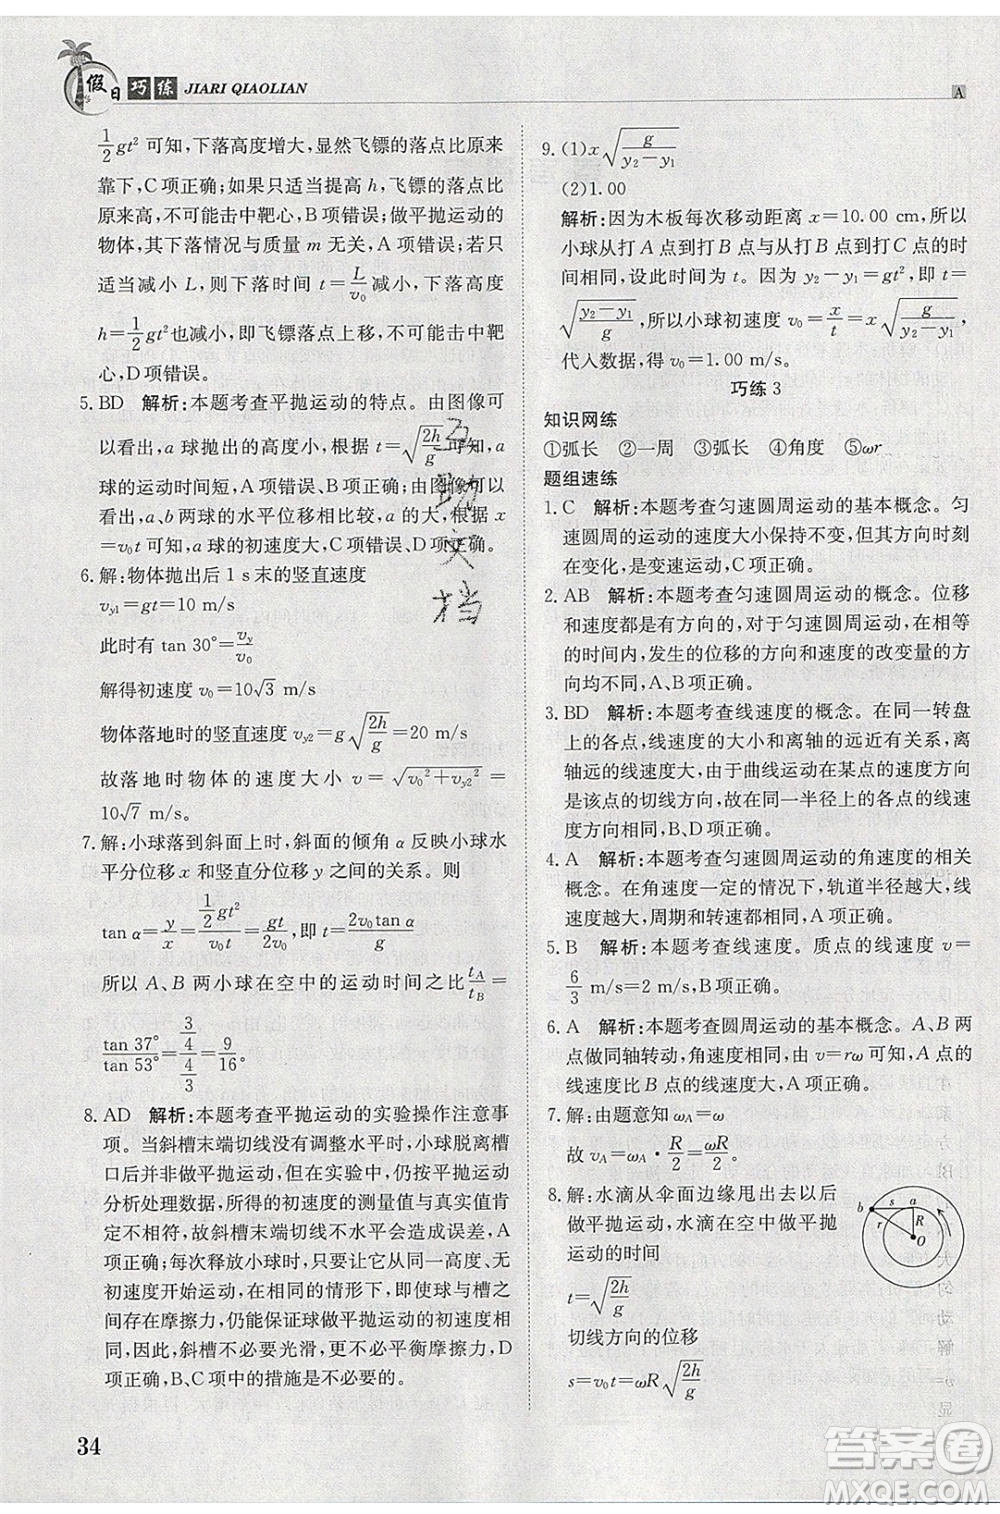 假日 巧练 JIARI QIAOLIAN
A
1/2 gt² 可知，下落高度增大，显然飞镖的落点比原来
靠下，C项正确；如果适当提高 h，飞镖的落点比原
来高，不可能击中靶心，B项错误；做平抛运动的
物体，其下落情况与质量 m 无关，A项错误；如果
适当减小 L，则运动时间 t=L/v₀ 减小，下落高度
h=1/2 gt² 也减小，即飞镖落点上移，不可能击中靶
心，D项错误。
5. BD 解析：本题考查平抛运动的特点。由图像可
以看出，a 球抛出的高度小，根据 t=√(2h/g) 可知，a
球的运动时间短，A项错误，B项正确；由图像可以
看出，a、b 两球的水平位移相比较，a 的大，根据 x
=v₀t 可知，a 球的初速度大，C项错误，D项正确。
6. 解：物体抛出后 1 s末的竖直速度
v_y1=gt=10 m/s
此时有 tan 30°=v_y/v₀
解得初速度 v₀=10√3 m/s
物体落地时的竖直速度 v_y2=g√(2h/g)=20 m/s
故落地时物体的速度大小 v=√(v₀²+v_y2²)=
10√7 m/s
7. 解：小球落到斜面上时，斜面的倾角 α 反映小球水
平分位移 x 和竖直分位移 y 之间的关系。则
tan α=y/x=(1/2 gt²)/(v₀t)=gt/2v₀，即 t=2v₀tan α/g
所以 A、B 两小球在空中的运动时间之比 t_A/t_B=
tan 37°/tan 53°=(3/4)/(4/3)=9/16
8. AD 解析：本题考查平抛运动的实验操作注意事
项。当斜槽末端切线没有调整水平时，小球脱离槽
口后并非做平抛运动，但在实验中，仍按平抛运动
分析处理数据，所得的初速度的测量值与真实值肯
定不相符，故斜槽末端切线不水平会造成误差，A
项正确；每次释放小球时，只要它从同一高度、无
初速度开始运动，在相同的情形下，即使球与槽之
间存在摩擦力，仍能保证球做平抛运动的初速度相
同。因此，斜槽不必光滑，也不必平衡摩擦力，D
项正确，B、C项中的措施是不必要的。
34
9. (1)x√(g/(y₂−y₁))
(2)1.00
解析：因为木板每次移动距离 x=10.00 cm，所以
小球从打 A 点到打 B 点与从打 B 点到打 C 点的时
间相同，设此时间为 t。因为 y₂−y₁=gt²，即 t=
√((y₂−y₁)/g)，所以小球初速度 v₀=x/t=x√(g/(y₂−y₁))，
代入数据，得 v₀=1.00 m/s。
巧练 3
知识网练
①弧长 ②一周 ③弧长 ④角度 ⑤ωr
题组速练
1. C 解析：本题考查匀速圆周运动的基本概念。匀
速圆周运动的速度大小保持不变，但其方向时刻
在变化，是变速运动，C项正确。
2. AB 解析：本题考查匀速圆周运动的概念。位移
和速度都是有方向的，对于匀速圆周运动，在相等
的时间内，发生的位移的方向和速度的改变量的方
向均不同，A、B项正确。
3. BD 解析：本题考查线速度的概念。在同一转盘
上的各点，线速度的大小和离轴的远近有关系，离
轴远的线速度大，由于曲线运动在某点的速度方向
是该点的切线方向，故转盘上的各点的线速度方
向不同，B、D项正确。
4. A 解析：本题考查匀速圆周运动的角速度的相关
概念。在角速度一定的情况下，轨道半径越大，线
速度越大，周期和转速都不变，A项正确。
5. B 解析：本题考查线速度。质点的线速度 v=
6/3 m/s=2 m/s，B项正确。
6. A 解析：本题考查圆周运动的基本概念。A、B 两
点做同轴转动，角速度相同，由于 v=rω，A 点的
线速度比 B 点的线速度大，A项正确。
7. 解：由题意知 ω_A=ω
故 v_A=ω_A·R/2=ωR/2。
8. 解：水滴从伞面边缘甩出去以后
做平抛运动，水滴在空中做平抛
运动的时间
b s a r R O
t=√(2h/g)
切线方向的位移
s=v₀t=ωR√(2h/g)
互助文档
答案卷